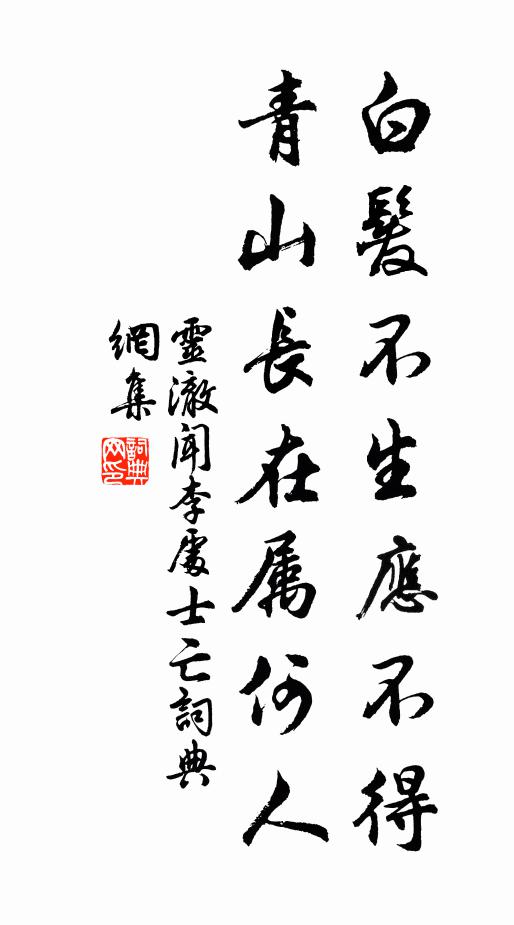 白髮不生應不得
青山長在属何人
靈澈聞李處士亡詞典
網集
詞典
网印